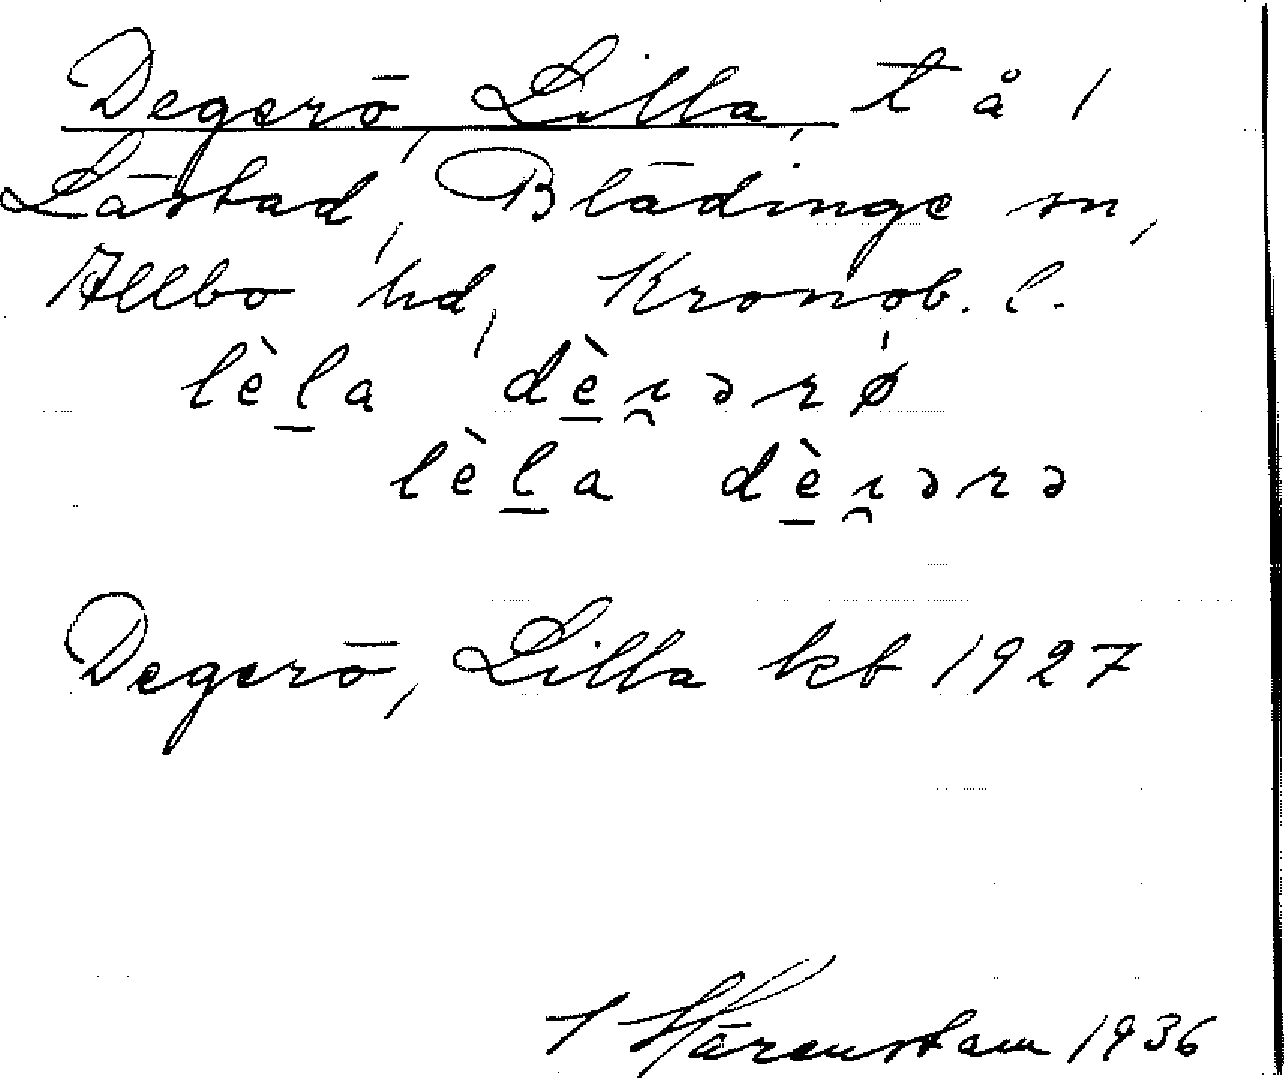 Degerö, Lilla, t å 1
Låstad, Blädinge sn,
Allbo hd, Kronob. l.
lèla dèɪ̯ərø
lèla dèɪ̯ərə
Degerö, Lilla kb 1927
Härenstam 1936